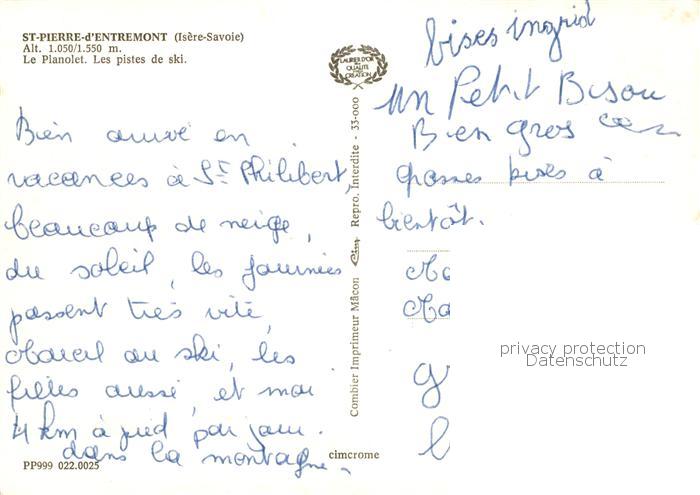 ST-PIERRE-d'ENTREMONT (Isère-Savoie)
Alt. 1.050/1.550 m.
Le Planolet. Les pistes de ski.
Bien arrivé en
vacances à St Philibert,
beaucoup de neige,
du soleil, les journées
passent très vite,
au ski, les
filles aussi, et moi
4 km à pied par jour.
dans la montagne.
PP999 022.0025
cimcrome
LAURIER D'OR
DE LA
QUALITÉ
CRÉATION
Combier Imprimeur Mâcon Cim Repro. Interdite - 33-000
bises ingrid
un Petit Bisou
Bien gros
grosses bises à
bientôt.
Ma
g
l
privacy protection
Datenschutz